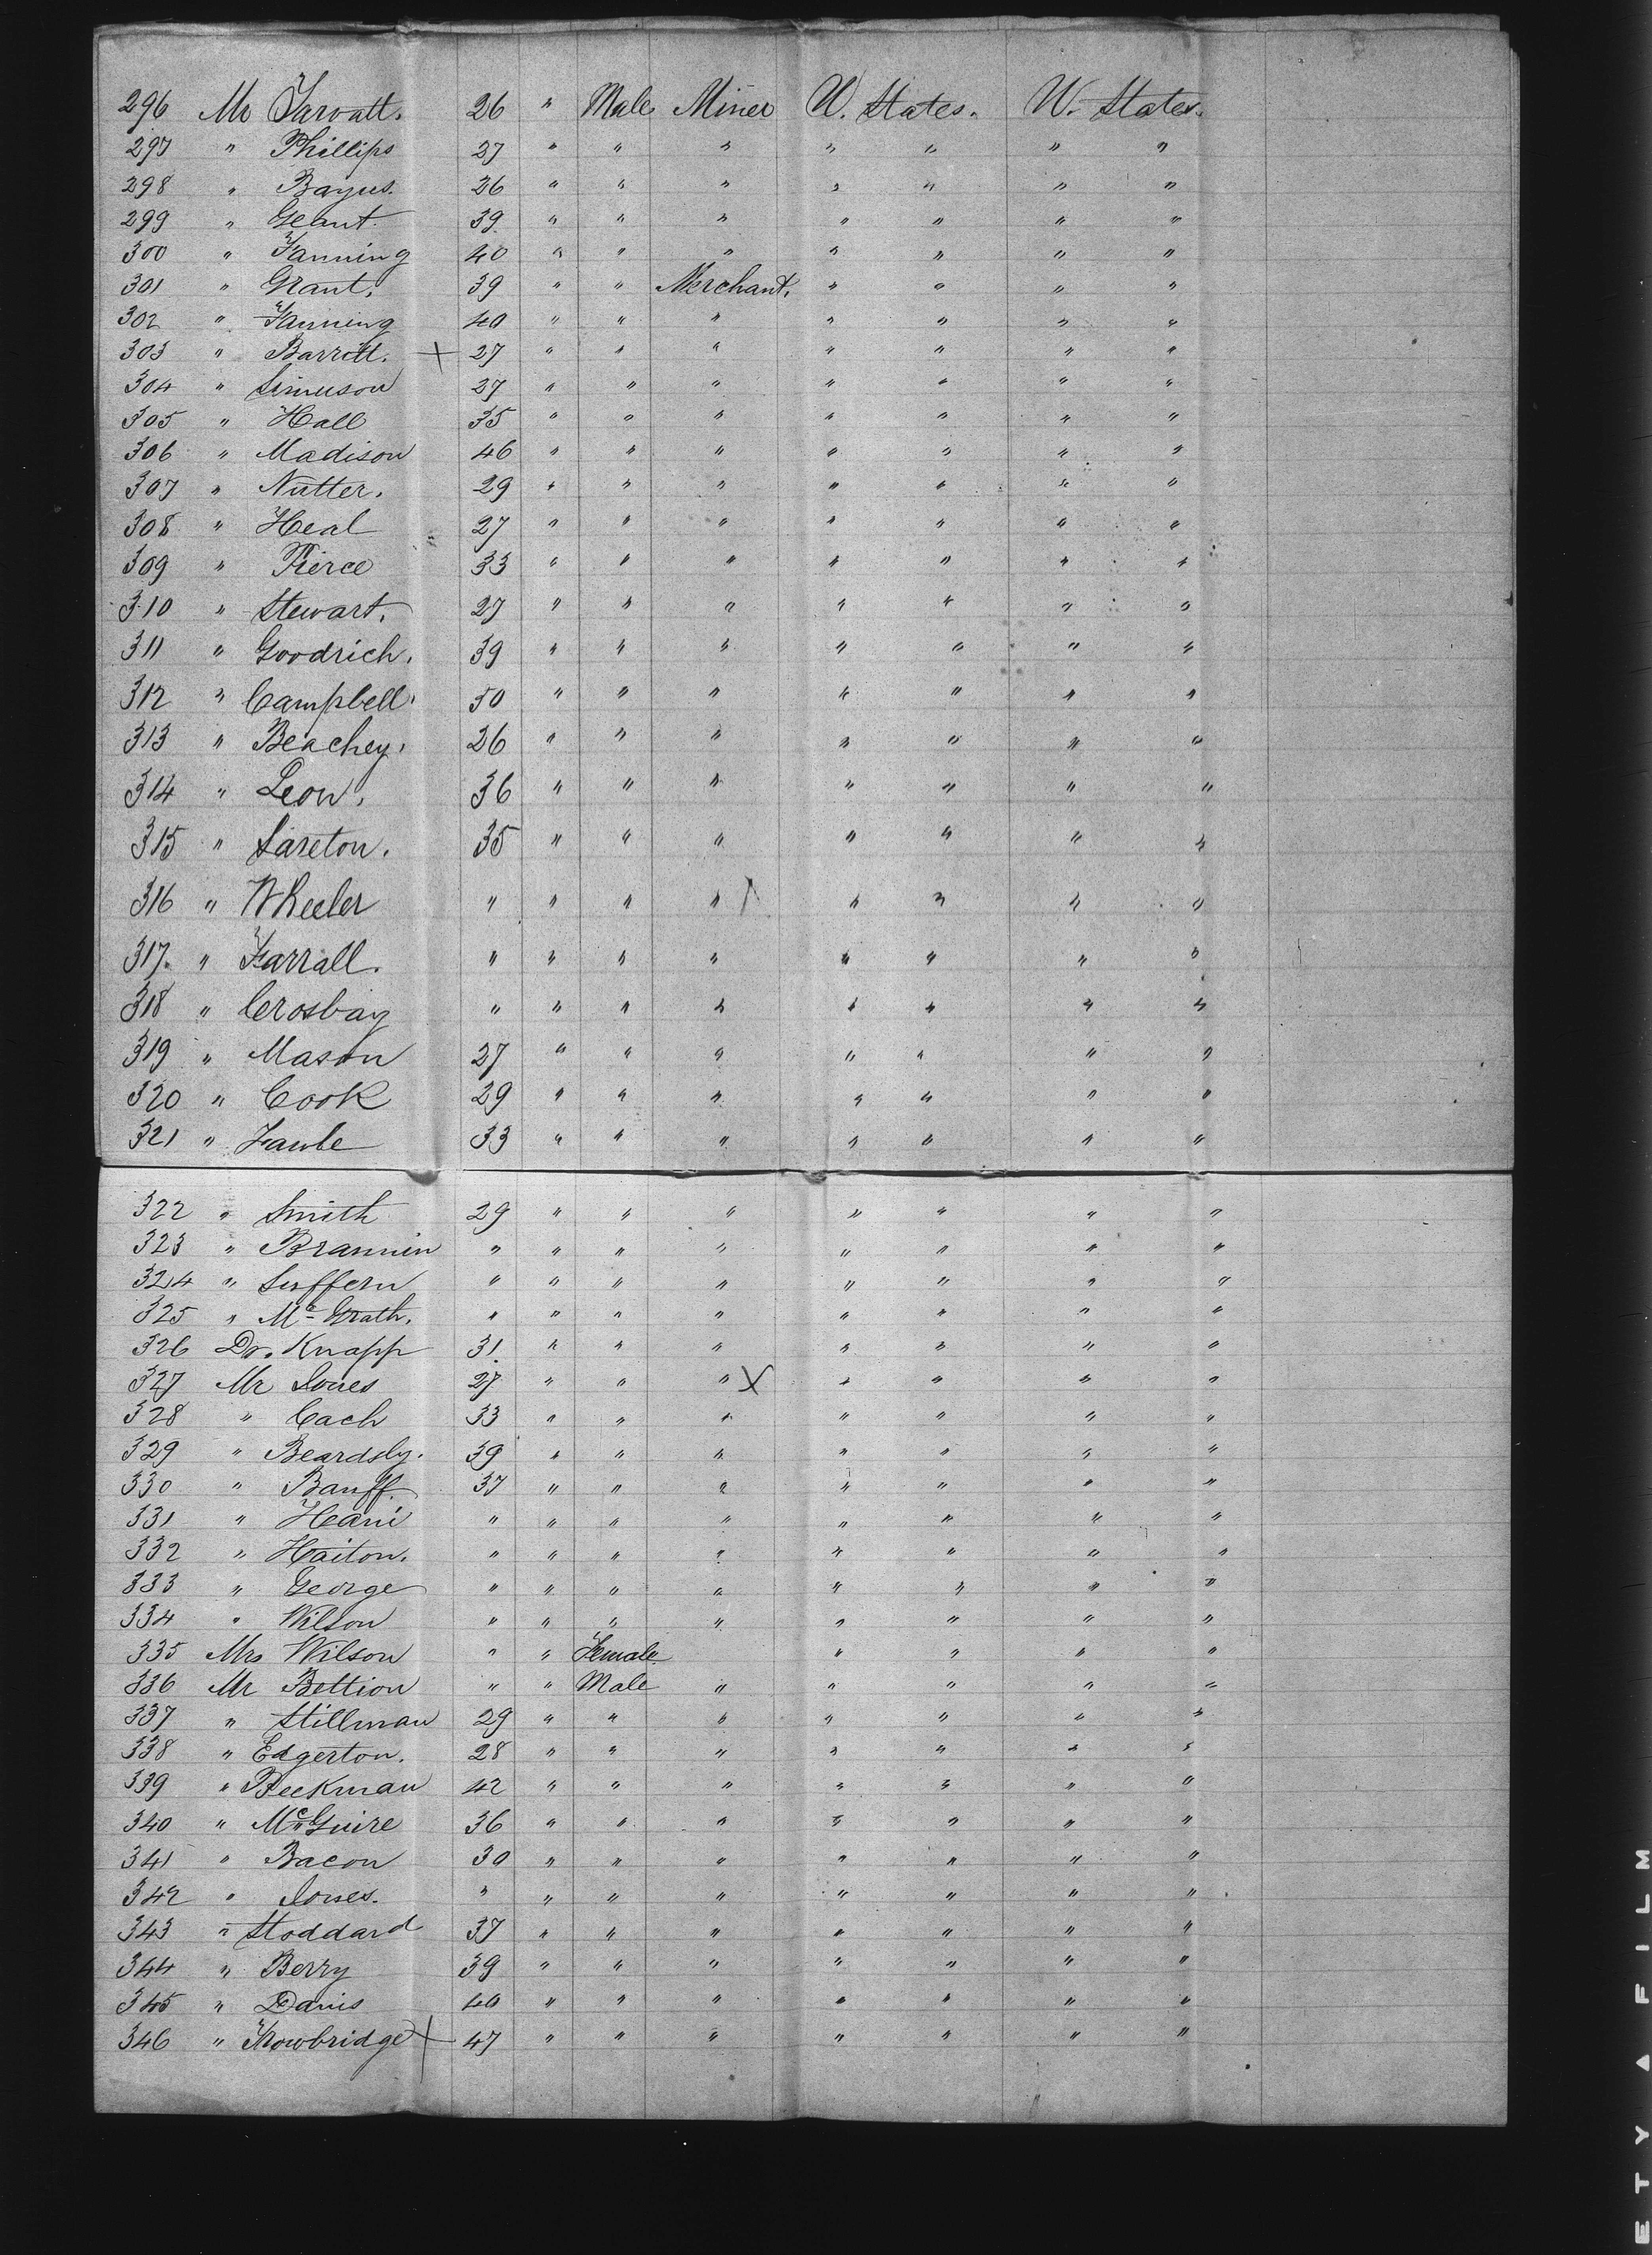 296 Mr Farratt. 26 " Male Miner U. States. U. States.
297 " Phillips 27 " " " " " " "
298 " Bayus. 26 " " " " " " "
299 " Geant. 39. " " " " " " "
300 " Fanning 40 " " " " " " "
301 " Grant. 39 " " Merchant. " " " "
302 " Fanning 40 " " " " " " "
303 " Barrott. + 27 " " " " " " "
304 " Simuson 27 " " " " " " "
305 " Hall 35 " " " " " " "
306 " Madison 46 " " " " " " "
307 " Nutter. 29 " " " " " " "
308 " Heal 27 " " " " " " "
309 " Pierce 33 " " " " " " "
310 " Stewart. 27 " " " " " " "
311 " Goodrich. 39 " " " " " " "
312 " Campbell. 50 " " " " " " "
313 " Beachey. 26 " " " " " " "
314 " Leon. 36 " " " " " " "
315 " Sareton. 35 " " " " " " "
316 " Wheeler " " " " " " " "
317. " Farrall. " " " " " " " "
318 " Crosbay " " " " " " " "
319 " Mason 27 " " " " " " "
320 " Cook 29 " " " " " " "
321 " Faube 33 " " " " " " "
322 " Smith 29 " " " " " " "
323 " Brannin " " " " " " " "
324 " Suffern " " " " " " " "
325 " Mc Grath. " " " " " " " "
326 Dr. Knapp 31. " " " " " " "
327 Mr Jones 27 " " " X " " " "
328 " Cach 33 " " " " " " "
329 " Beardsly. 39 " " " " " " "
330 " Banff. 37 " " " " " " "
331 " Heani " " " " " " " "
332 " Haiton. " " " " " " " "
333 " George " " " " " " " "
334 " Wilson " " " " " " " "
335 Mrs Wilson " " Female " " " "
336 Mr Bettion " " Male " " " " "
337 " Stillman 29 " " " " " " "
338 " Edgerton. 28 " " " " " " "
339 " Beekman 42 " " " " " " "
340 " McGuire 36 " " " " " " "
341 " Bacon 30 " " " " " " "
342 " Jones. " " " " " " " "
343 " Stoddard 37 " " " " " " "
344 " Berry 39 " " " " " " "
345 " Danis 40 " " " " " " "
346 " Trowbridge + 47 " " " " " " "
ETY▲FILM